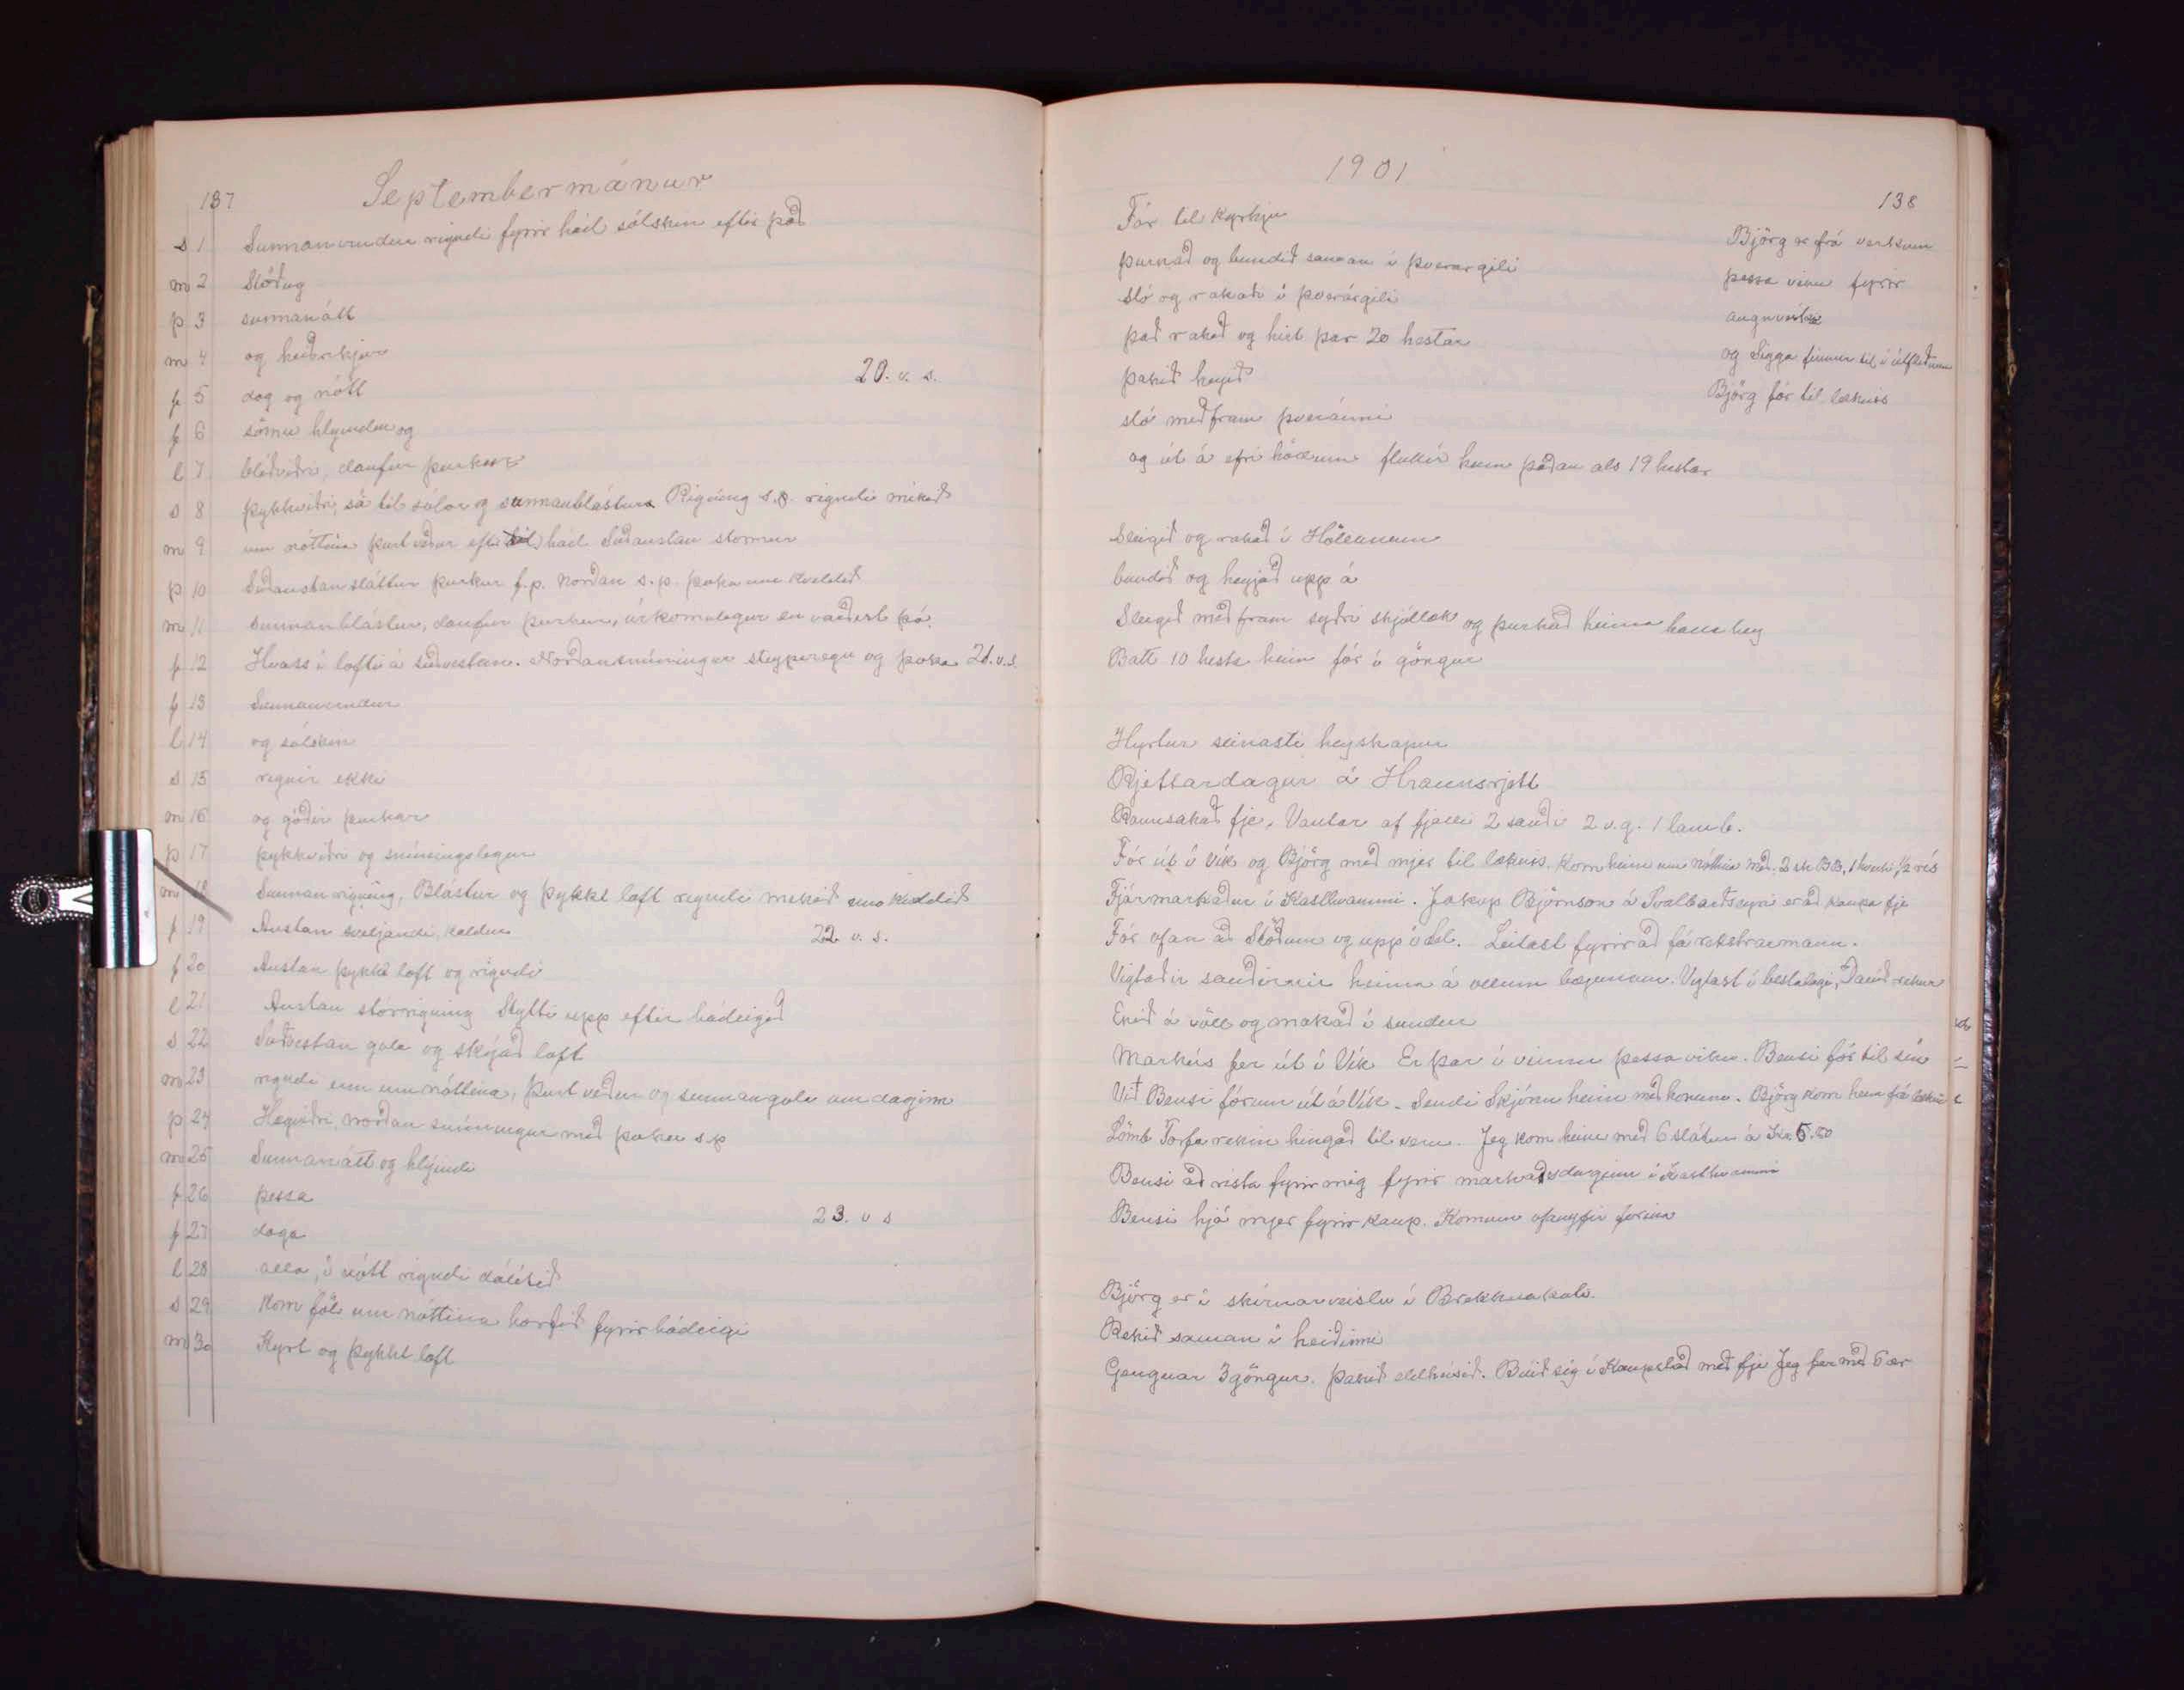 137
Septembermánur
s 1 Sunnanvindur rigndi fyrir hád sólsken eftir það
m 2 Stöðug
þ 3 sunnanátt
m 4 og heiðrikjur
f 5 dag og nótt 20. v. s.
f 6 sömu hlyindin og
l 7 blíðviðri, daufur þurkur
s 8 þykkviðri, sá til sólar og sunnanblástur Rigning s.p. rigndi mikið
m 9 um nóttina þurt veður eftir hád Suðaustan stormur
þ 10 Suðaustan sláttur þurkur f.p. Norðan s.p. þoka um kveldið
m 11 Sunnanblástur, daufur þurkur, úrkomulegur en varðist þó.
f 12 Hvass í lofti á suðvestan. Norðansnúningur steyperegn og þoka 21. v.s.
f 13 Sunnanvindur
l 14 og sólsken
s 15 regnir ekki
m 16 og góðir þurkar
þ 17 þykkviðri og snúningslegur
m 18 Sunnan rigning, Blástur og þykkt loft rigndi mikið um kveldið
f 19 Austan sveljandi, kaldur 22 v. s.
f 20 Austan þykkt loft og rigndi
l 21 Austan stórrigning Stytti upp eftir hádeigið
s 22 Suðvestan gola og skýjað loft
m 23 rigndi enn um nóttina, þurt veður og sunnangola um daginn
þ 24 Hægviðri, norðan snúningur með þoku s.p
m 25 Sunnanátt og hlýindi
f 26 þessa
f 27 daga 23. v s
l 28 alla, í nótt rigndi dálítið
s 29 Kom föl um nóttina horfið fyrir hádeigi
m 30 Kyrt og þykkt loft
1901
138
Fór til Kyrkju
þurkað og bundið saman í þverárgili
sló og rakaði í þverárgili
það rakað og hirt þar 20 hestar
þakið heyið
sló meðfram þveránni
og út á efri hólum fluttir heim þaðan als 19 hestar
Björg er frá verkum
þessa viku fyrir
augnveiki
og Sigga finnur til í útflæðum
Björg fór til læknis
Sleigið og rakað í Hólunum
bundið og heyjað upp á
Sleigið með fram syðri skjóllæk og þurkað heima hana hey
Batt 10 hesta heim fór í göngur
Hyrtur seinasti heyskapur
Rjettardagur á Hraunsrjett
Rannsakað fje. Vantar af fjalli 2 sauði 2 v.g. 1 lamb.
Fór út í Vík og Björg með mjer til læknis. Kom heim um nóttina með. 2 sk BB, 1 hveiti, 1/2 rís
Fjármarkaður í Kasthvammi. Jakop Björnson á Svalbarðseyri er að kaupa fje
Fór ofan að Stöðum og upp í Sel. Leitast fyrir að fá rekstrarmann.
Vigtaðir sauðirnir heima á ollum bæjunum. Vigtast í bestalagi, Davíð rekur
Ekið á völl og mokað í sundur
Markús fer út í Vík Er þar í vinnu þessa viku. Bensi fór til sín
Við Bensi fórum út á Vík. Sendi Skjóna heim með honum. Björg kom heim frá lækni
Lömb Torfa rekin hingað til veru. Jeg kom heim með 6 slátur á Kr. 5.50
Bensi að rista fyrir mig fyrir markaðsdaginn í Kasthvammi
Bensi hjá mjer fyrir kaup. Komum ofanyfir
Björg er í skírnarveislu í Brekknakoti
Rekið saman í heiðinni
Gengnar 3 göngur. þakið eldhúsið. Búið sig í Kaupstað með fje Jeg fer með 6 ær